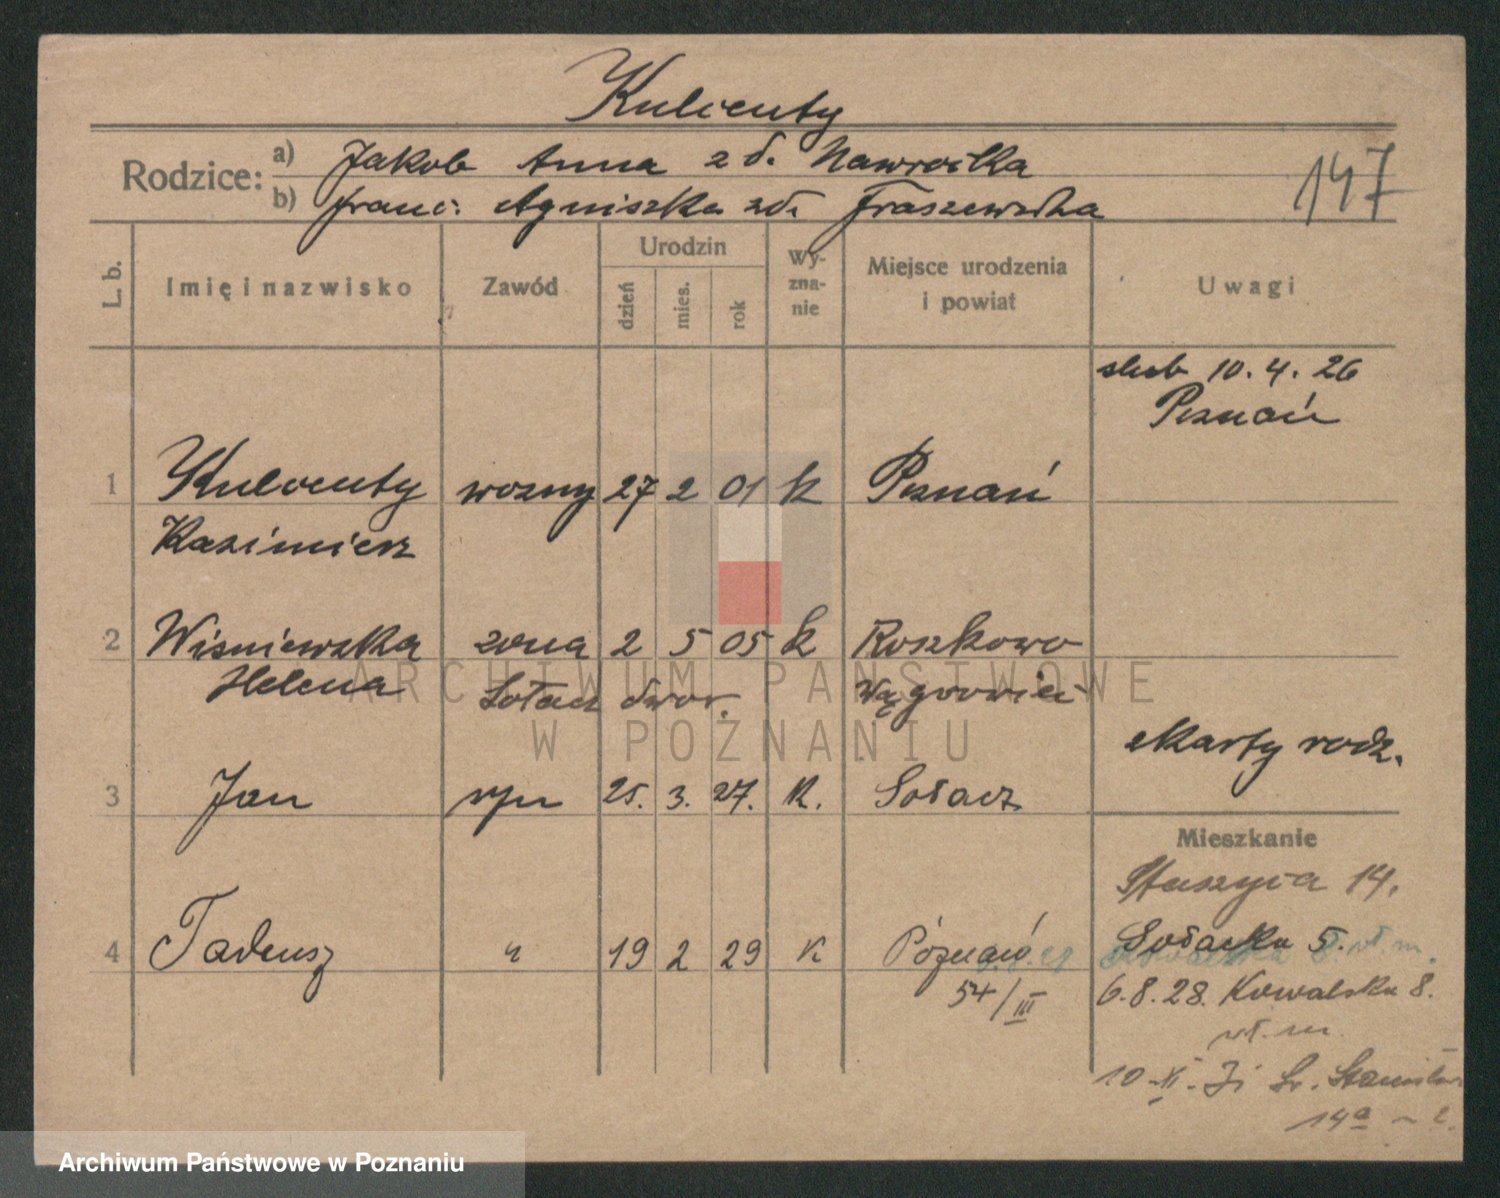 Kulcenty
Rodzice: a) Jakob Anna zd. Nawrocka
b) franc. Agniszka zd. Fraszewska
147
L. b.
Imię i nazwisko
Zawód
Urodzin
dzień
mies.
rok
Wy-
zna-
nie
Miejsce urodzenia
i powiat
Uwagi
slub 10.4.26
Poznań
1 Kulcenty wozny 27 2 01 k Poznań
Kazimierz
2 Wisniewska zona 2 5 05 k Roszkowo
Helena Sołacz dwor. Wągrowiec
Karty rodz.
3 Jan syn 25. 3. 27. K. Sołacz
Mieszkanie
Staszyca 14.
4 Tadeusz " 19 2 29 K Póznań
54/III
Sołacka 5.
6.8.28. Kowalska 8.
wł. m.
10-XI-
14a
ARCHIWUM PAŃSTWOWE
W POZNANIU
Archiwum Państwowe w Poznaniu